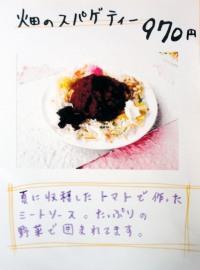 畑のスパゲティー 970円
夏に収穫したトマトで作った
ミートソース。たっぷりの
野菜で囲まれてます。